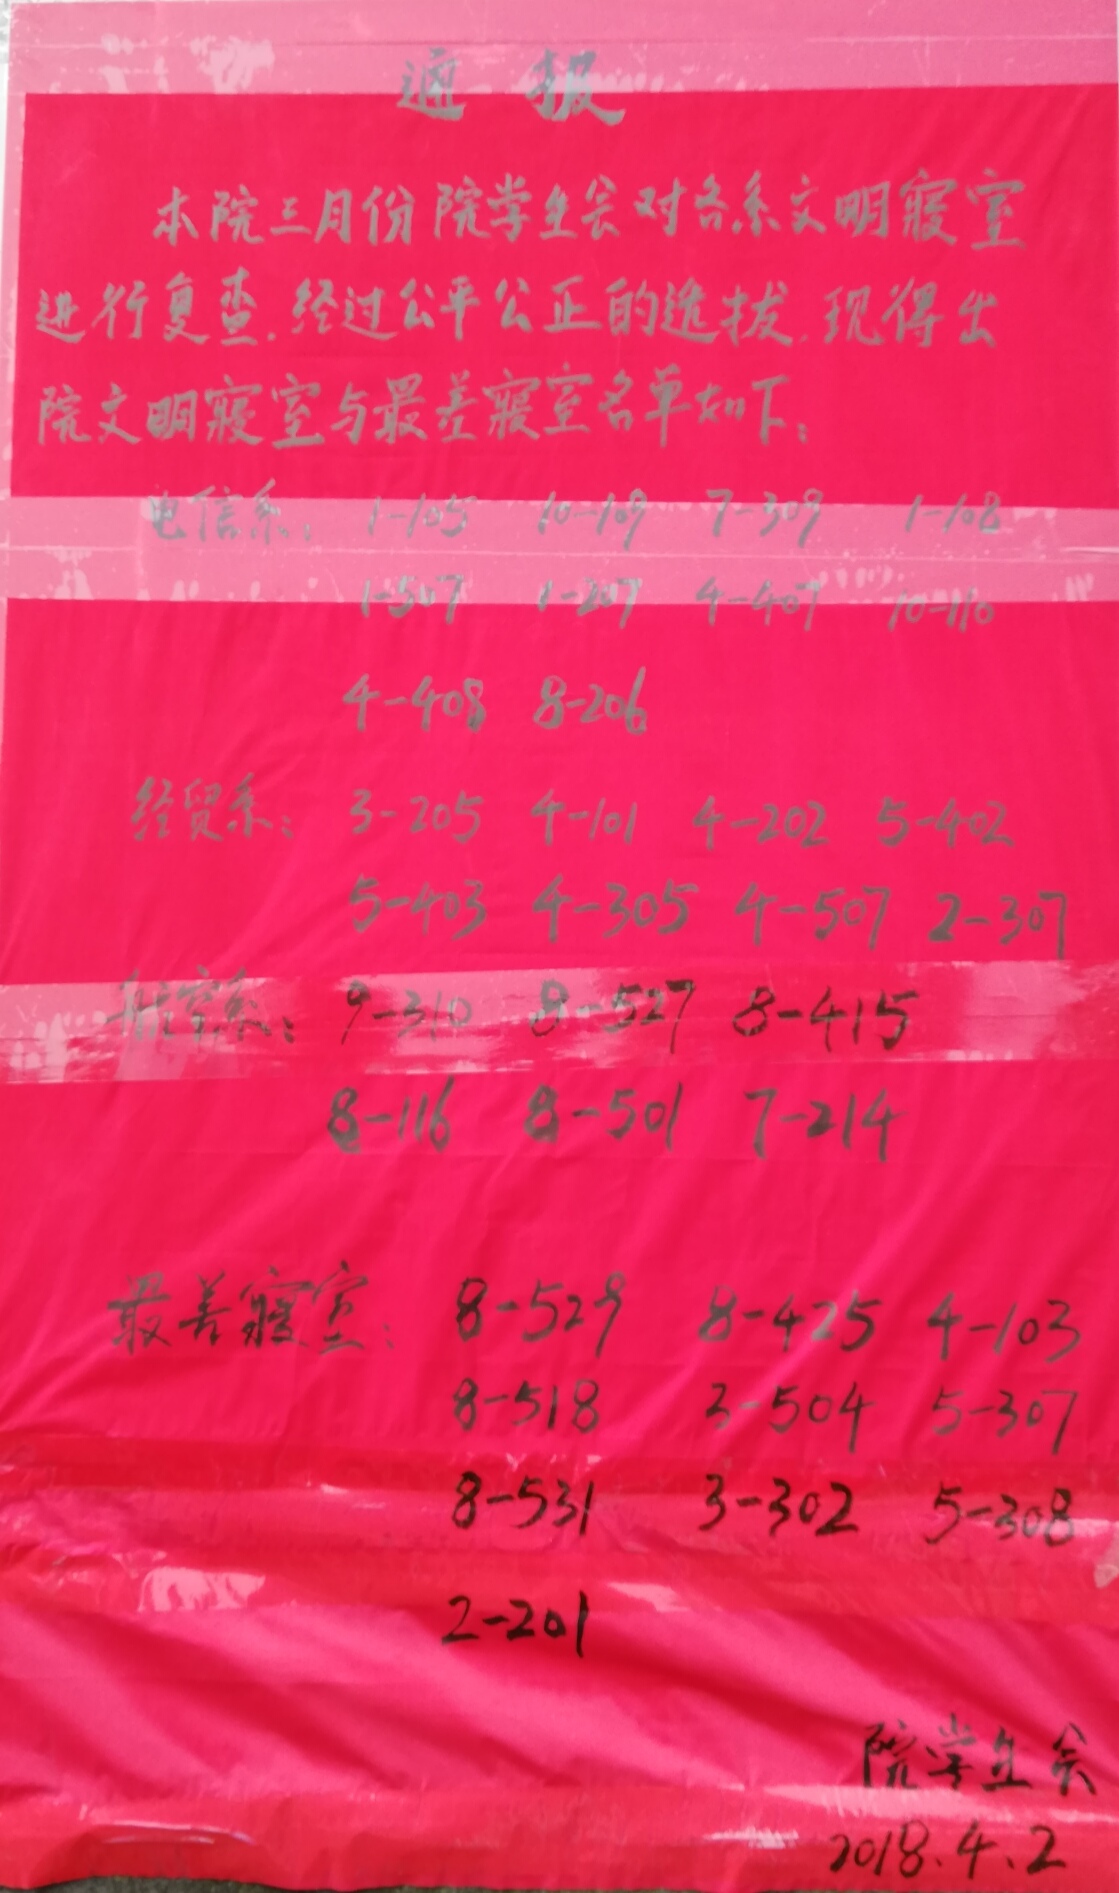 通报
本院三月份院学生会对各系文明寝室
进行复查.经过公平公正的选拔.现得出
院文明寝室与最差寝室名单如下:
电信系: 1-105 10-109 7-309 1-108
1-507 1-207 4-407 10-110
4-408 8-206
经贸系: 3-205 4-101 4-202 5-402
5-403 4-305 4-507 2-307
航空系: 9-310 8-527 8-415
8-116 8-501 7-214
最差寝室: 8-529 8-425 4-103
8-518 3-504 5-307
8-531 3-302 5-308
2-201
院学生会
2018.4.2